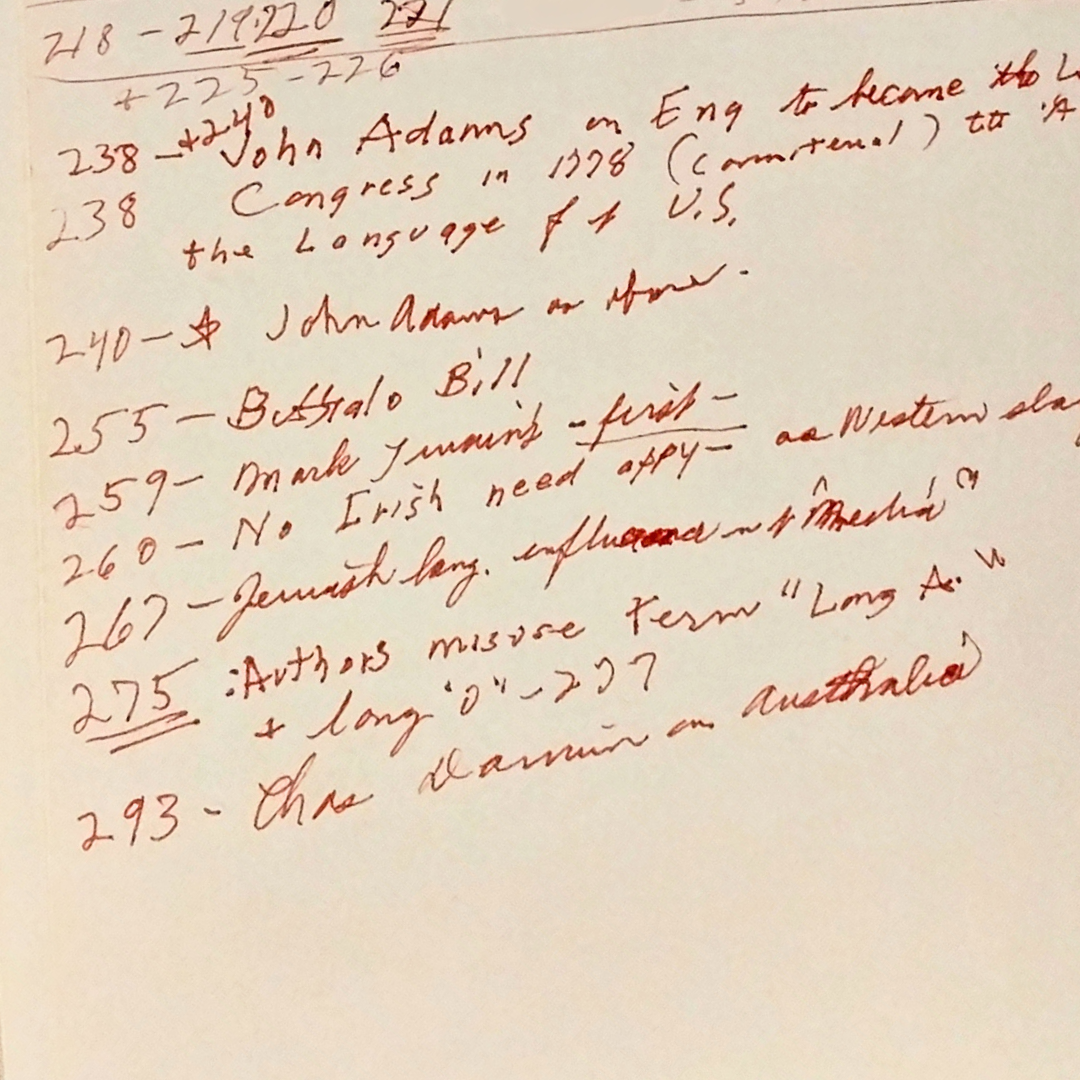 218 - 219·220 221
+225-226
238 - +240 John Adams on Eng to become the
238 Congress in 1778 to "A
the Language of U.S.
240 - John Adams as above.
255 - Buffalo Bill
259 - Mark Twain's - first -
260 - No Irish need appy - as Western
267 - Jewish lang. influence in "Media"
275 : Authors misuse term "Long A."
+ long "O" - 277
293 - Chas Darwin on Australia